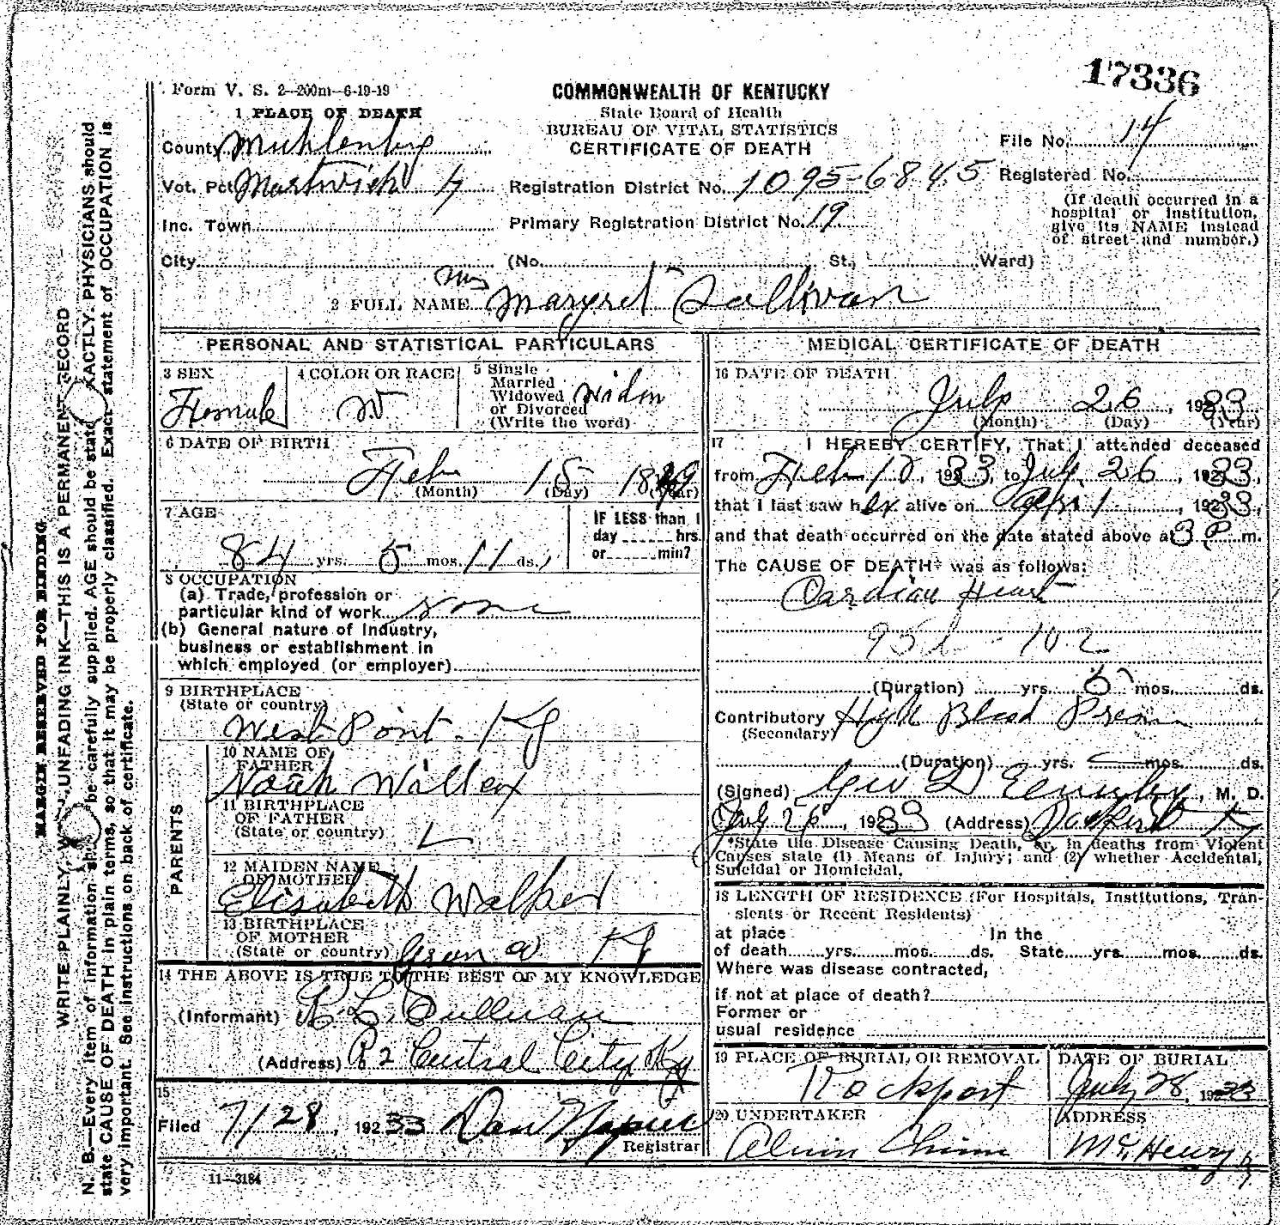 17336
Form V. S. 2—200m—6-19-19
COMMONWEALTH OF KENTUCKY
State Board of Health
BUREAU OF VITAL STATISTICS
CERTIFICATE OF DEATH
1 PLACE OF DEATH
County Muhlenberg
Vot. Pct. Martwick 4
Inc. Town
City
Registration District No. 1095-6845
Primary Registration District No. 19
(No. St., Ward)
File No. 14
Registered No.
(If death occurred in a
hospital or institution,
give its NAME instead
of street and number.)
2 FULL NAME Mrs Margret Sullivan
PERSONAL AND STATISTICAL PARTICULARS
3 SEX
Female
4 COLOR OR RACE
W
5 Single
Married
Widowed
or Divorced
(Write the word)
Widow
6 DATE OF BIRTH
Feb 15 1849
(Month) (Day) (Year)
7 AGE
84 yrs. 5 mos. 11 ds.
IF LESS than 1
day hrs.
or min?
8 OCCUPATION
(a) Trade, profession or
particular kind of work none
(b) General nature of industry,
business or establishment in
which employed (or employer)
9 BIRTHPLACE
(State or country)
West Point - Ky
PARENTS
10 NAME OF
FATHER
Noah
11 BIRTHPLACE
OF FATHER
(State or country)
12 MAIDEN NAME
OF MOTHER
Elisabeth Walker
13 BIRTHPLACE
OF MOTHER
(State or country) Ky
14 THE ABOVE IS TRUE TO THE BEST OF MY KNOWLEDGE
(Informant) R. L. Sullivan
(Address) R 2 Central City Ky
15
Filed 7/28, 1933
Registrar
11—3184
MEDICAL CERTIFICATE OF DEATH
16 DATE OF DEATH
July 26, 1933
(Month) (Day) (Year)
17 I HEREBY CERTIFY, That I attended deceased
from Feb 10, 1933, to July 26, 1933,
that I last saw her alive on Apr 1, 1933,
and that death occurred on the date stated above at 3 P m.
The CAUSE OF DEATH* was as follows:
Cardiac Heart
102
(Duration) yrs. 5 mos. ds.
Contributory High Blood
(Secondary)
(Duration) yrs. mos. ds.
(Signed) Geo D , M. D.
July 26, 1933 (Address) Ky
*State the Disease Causing Death, or, in deaths from Violent
Causes state (1) Means of Injury; and (2) whether Accidental,
Suicidal or Homicidal.
18 LENGTH OF RESIDENCE (For Hospitals, Institutions, Tran-
sients or Recent Residents)
at place In the
of death yrs. mos. ds. State yrs. mos. ds.
Where was disease contracted,
if not at place of death?
Former or
usual residence
19 PLACE OF BURIAL OR REMOVAL
Rockport
DATE OF BURIAL
July 28, 1933
20 UNDERTAKER
Alvin Chinn
ADDRESS
McHenry Ky
MARGIN RESERVED FOR BINDING
WRITE PLAINLY, UNFADING INK—THIS IS A PERMANENT RECORD
N. B.—Every item of information should be carefully supplied. AGE should be stated EXACTLY. PHYSICIANS should
state CAUSE OF DEATH in plain terms, so that it may be properly classified. Exact statement of OCCUPATION is
very important. See instructions on back of certificate.